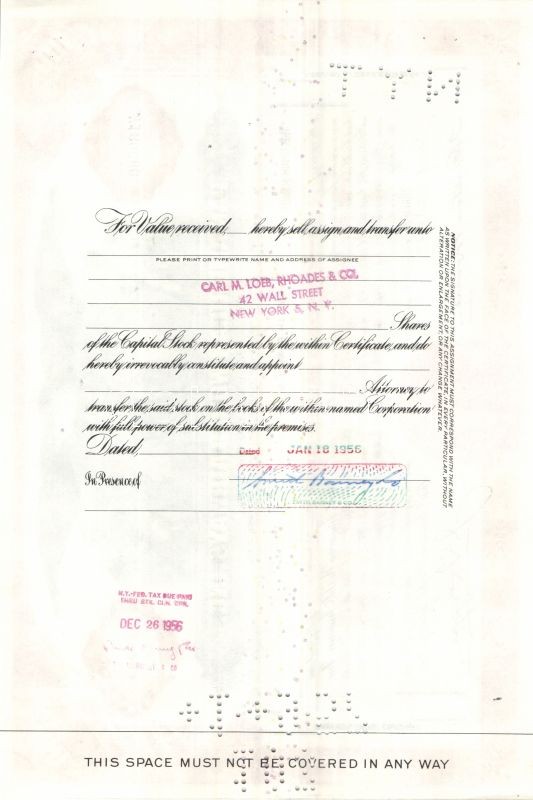 For Value received, hereby sell, assign and transfer unto
PLEASE PRINT OR TYPEWRITE NAME AND ADDRESS OF ASSIGNEE
CARL M. LOEB, RHOADES & CO.
42 WALL STREET
NEW YORK 5, N. Y.
Shares
of the Capital Stock represented by the within Certificate, and do
hereby irrevocably constitute and appoint
Attorney to
transfer the said stock on the books of the within-named Corporation
with full power of substitution in the premises.
Dated, Dated JAN 18 1956
In Presence of
NOTICE: THE SIGNATURE TO THIS ASSIGNMENT MUST CORRESPOND WITH THE NAME
AS WRITTEN UPON THE FACE OF THE CERTIFICATE, IN EVERY PARTICULAR, WITHOUT
ALTERATION OR ENLARGEMENT, OR ANY CHANGE WHATEVER.
N.Y.-FED. TAX DUE PAID
THRU STK. CLN. CPR.
DEC 26 1956
THIS SPACE MUST NOT BE COVERED IN ANY WAY